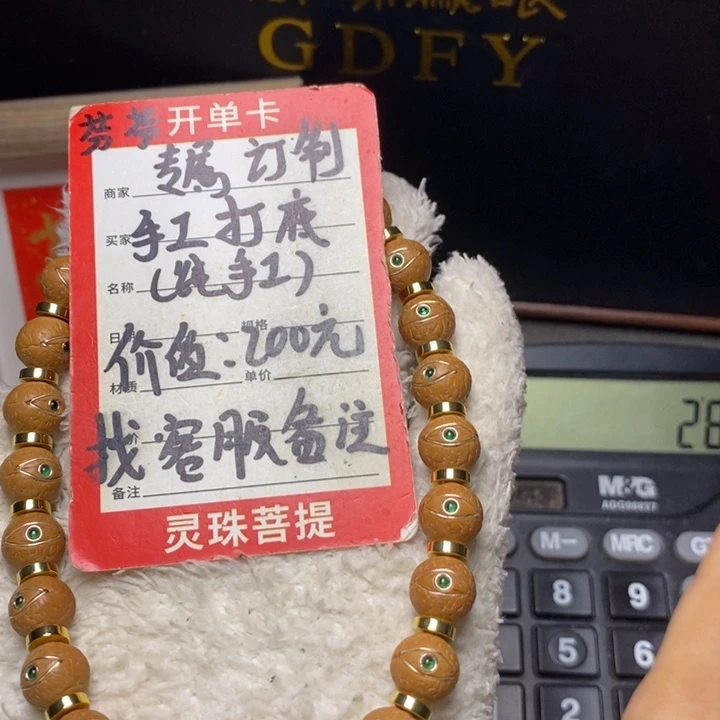 GDFY
芬芬 开单卡
商家 专属订制
买家 手工打底
名称 (纯手工)
日期 规格
价值:200元
材质 单价
找客服备注
备注
灵珠菩提
28
M&G
M− MRC
8 9
5 6
2